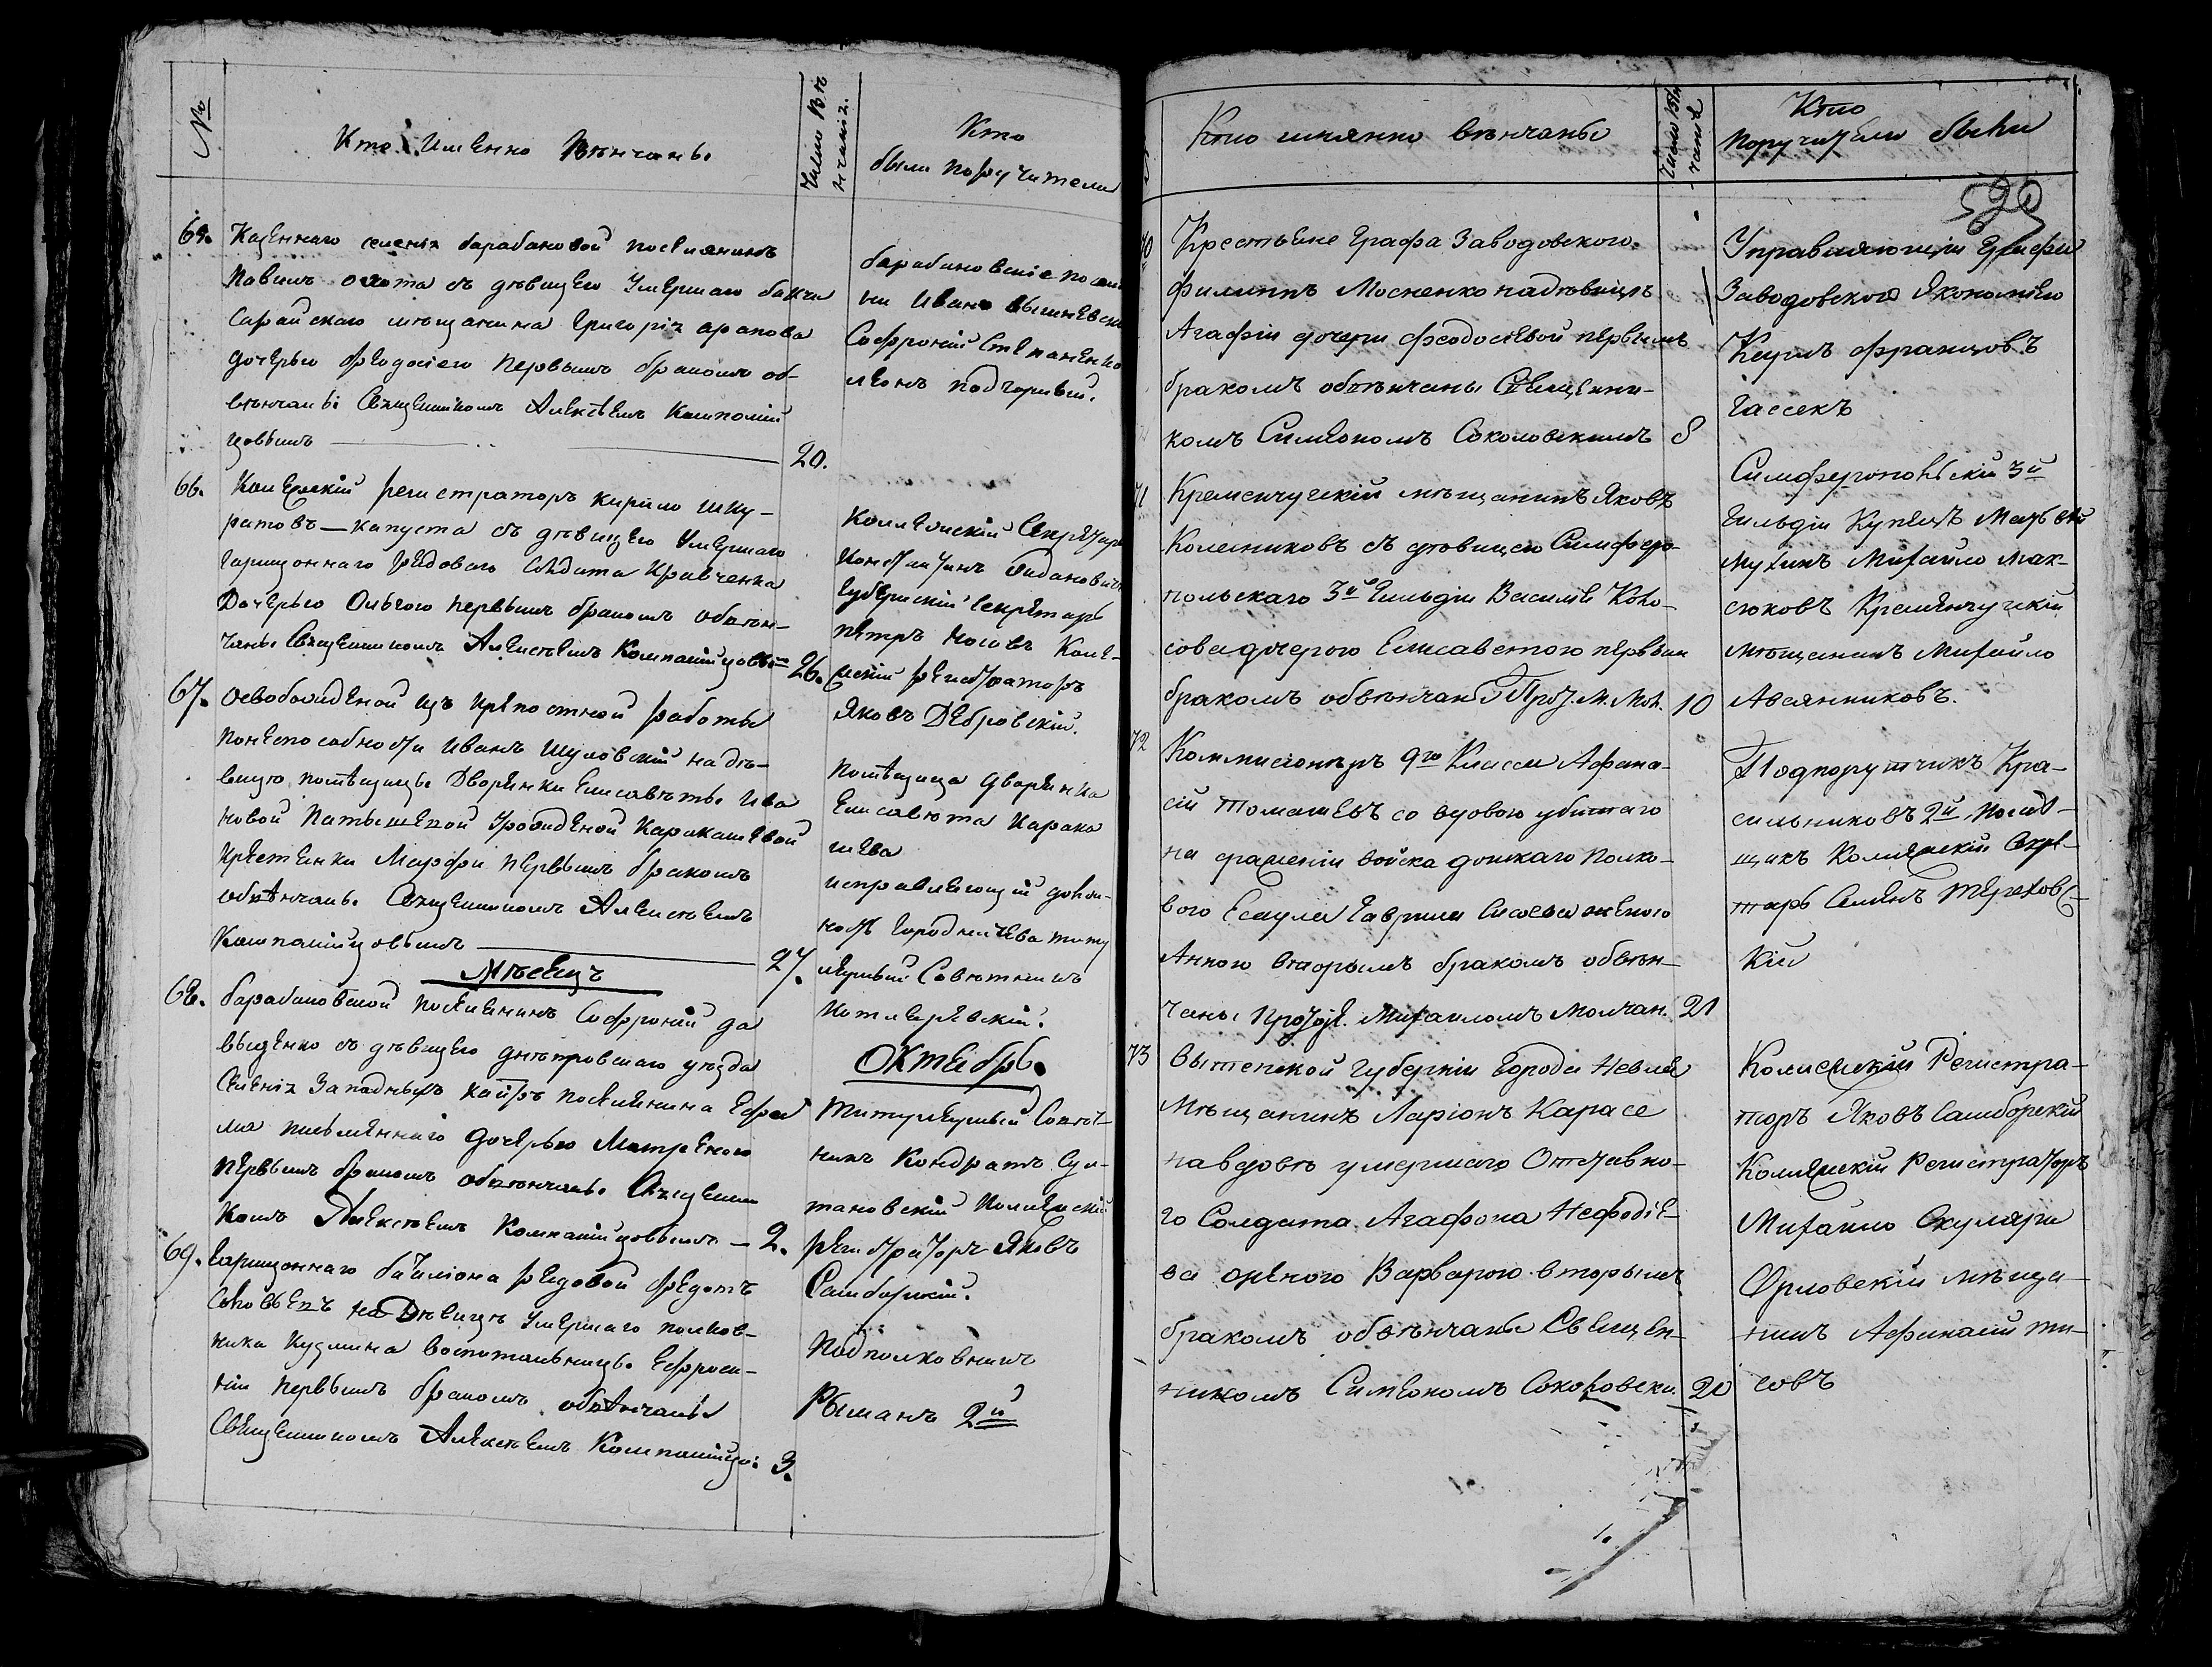 №
Кто именно венчаны
Число вѣ
нчанія.
Кто
были поручители
65. Казеннаго селенія барабановой поселянинъ
Павилъ охота съ дѣвицею умершаго бахчи
Сарайскаго мѣщанина григорія арапова
дочерью феодосіею первымъ бракомъ об-
вѣнчаны Священникомъ Алексѣемъ Компаній
цовымъ 20.
барабановскіе посел
ни Иванъ вышневск
Софроній Степаненко
леонъ подгорный.
66. Колежскій регистраторъ кирило шку-
ратовъ — капуста съ дѣвицею умершаго
гарнизоннаго рядоваго солдата Кравченка
Дочерью Ольгою первымъ бракомъ обвѣн-
чаны Священникомъ Алексѣемъ Компанійцовым 26.
Коллежскій Секретарь
Константинъ
Губернскій Секретарь
петръ носовъ Коле-
жскій регистраторъ
Яковъ Дебровскій.
67. освобожденой изъ крепостной работы
понеспособности Иванъ Шуловскій на дѣ-
вицею помѣщицы Дворянки Елисаветы Ива
новой Патышевой урожденой Каракашевой
крестянки Марфи первымъ бракомъ
обвѣнчаны Священникомъ Алексѣемъ
Компанійцовымъ 27.
помѣщица дворянка
Елисавета Карака
шева
исправляющій долж-
ность городничева титу
лярный Совѣтникъ
Котляревскій.
Мѣсяцъ
ОКтябрь.
68. барабановской поселянинъ Софроній да
выденко съ дѣвицею днѣпровскаго уѣзда
Селенія Западныхъ каиръ поселянина Ефре
ма писменнаго дочерью Матреною
первымъ бракомъ обвѣнчаны Священни
комъ Алексѣемъ Компанійцовымъ — 2.
Титулярный Совѣт-
никъ Кондратъ Сул-
тановскій Колежскій
регистраторъ Яковъ
Самборскій.
69. гарнизоннаго баталіона рядовой федотъ
на Дѣвицѣ умершаго полков-
ника Кузмина воспитаницы Ефроси-
ніи первымъ бракомъ обвѣнчаны
Священникомъ Алексѣемъ Компанійцо: 3.
Подполковникъ
Рыманъ 2й
Кто имянно вѣнчаны
Число вѣн
чанія
Кто
поручители были
70 Крестьяне Графа Заводовского
филиппъ Мосненко на дѣвицѣ
Агафіи дочери Феодосіевой первымъ
бракомъ обвѣнчаны Священни-
комъ Симеономъ Соколовскимъ 8
Управляющій Графа
Заводовского Экономіею
Карлъ францовъ
Гассекъ
71 Кременчугскій мѣщанинъ Яковъ
Колесниковъ съ дѣвицею Симферо-
польскаго 3й Гильдіи Василія Коло-
сова дочерою Елисаветою первым
бракомъ обвѣнчаны Прот. М. Мол. 10
Симферопольскій 3й
гильдіи Купецъ Матвей
Мухинъ Михайло Мак-
сюковъ Кременчугскій
мѣщанинъ Михайло
Авсянниковъ.
72 Коммисіонеръ 9го Класса Афана-
сій Томашевъ со вдовою убитаго
на сраженіи войска донскаго Полко-
вого Есаула Гаврила Сисоева женою
Анною вторымъ бракомъ обвѣн-
чаны Протоіе. Михаиломъ Молчан. 21
Подпорутчикъ Кра-
сильниковъ 2й
Коллежскій Секре-
тарь Семенъ Тереховс-
кій
73 Витепской губерніи города Невля
Мѣщанинъ Ларіонъ Карасе
на вдовѣ умершаго Отставно-
го Солдата Агафона Нефодіе-
ва женою Варварою вторымъ
бракомъ обвѣнчаны Священ-
никомъ Симеономъ Соколовски. 20
Колежскій Регистра-
торъ Яковъ Самборскій
Колежскій Регистраторъ
Михайло Скуляри
Орловскій мѣща-
нинъ Афанасій ти-
совъ